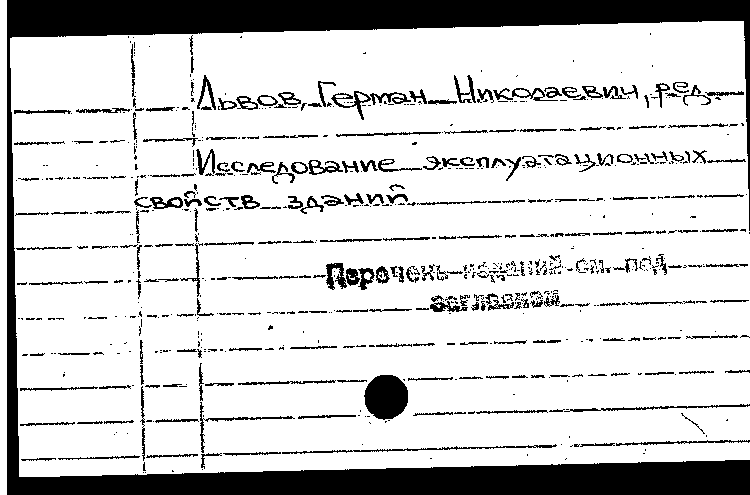 Львов, Герман Николаевич, ред.
Исследование эксплуатационных
свойств зданий.
Перечень изданий см. под
заглавием